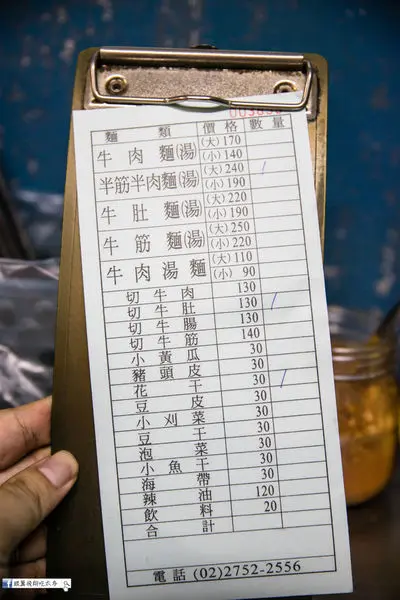 麵類 價格 數量
牛肉麵(湯) (大)170
(小)140
半筋半肉麵(湯) (大)240
(小)190
牛肚麵(湯) (大)220
(小)190
牛筋麵(湯) (大)250
(小)220
牛肉湯麵 (大)110
(小) 90
切牛肉 130
切牛肚 130
切牛腸 130
切牛筋 140
小黃瓜 30
豬頭皮 30
花干 30
豆皮 30
小刈菜 30
豆干 30
泡菜 30
小魚干 30
海帶 30
辣油 120
飲料 20
合計
電話 (02)2752-2556